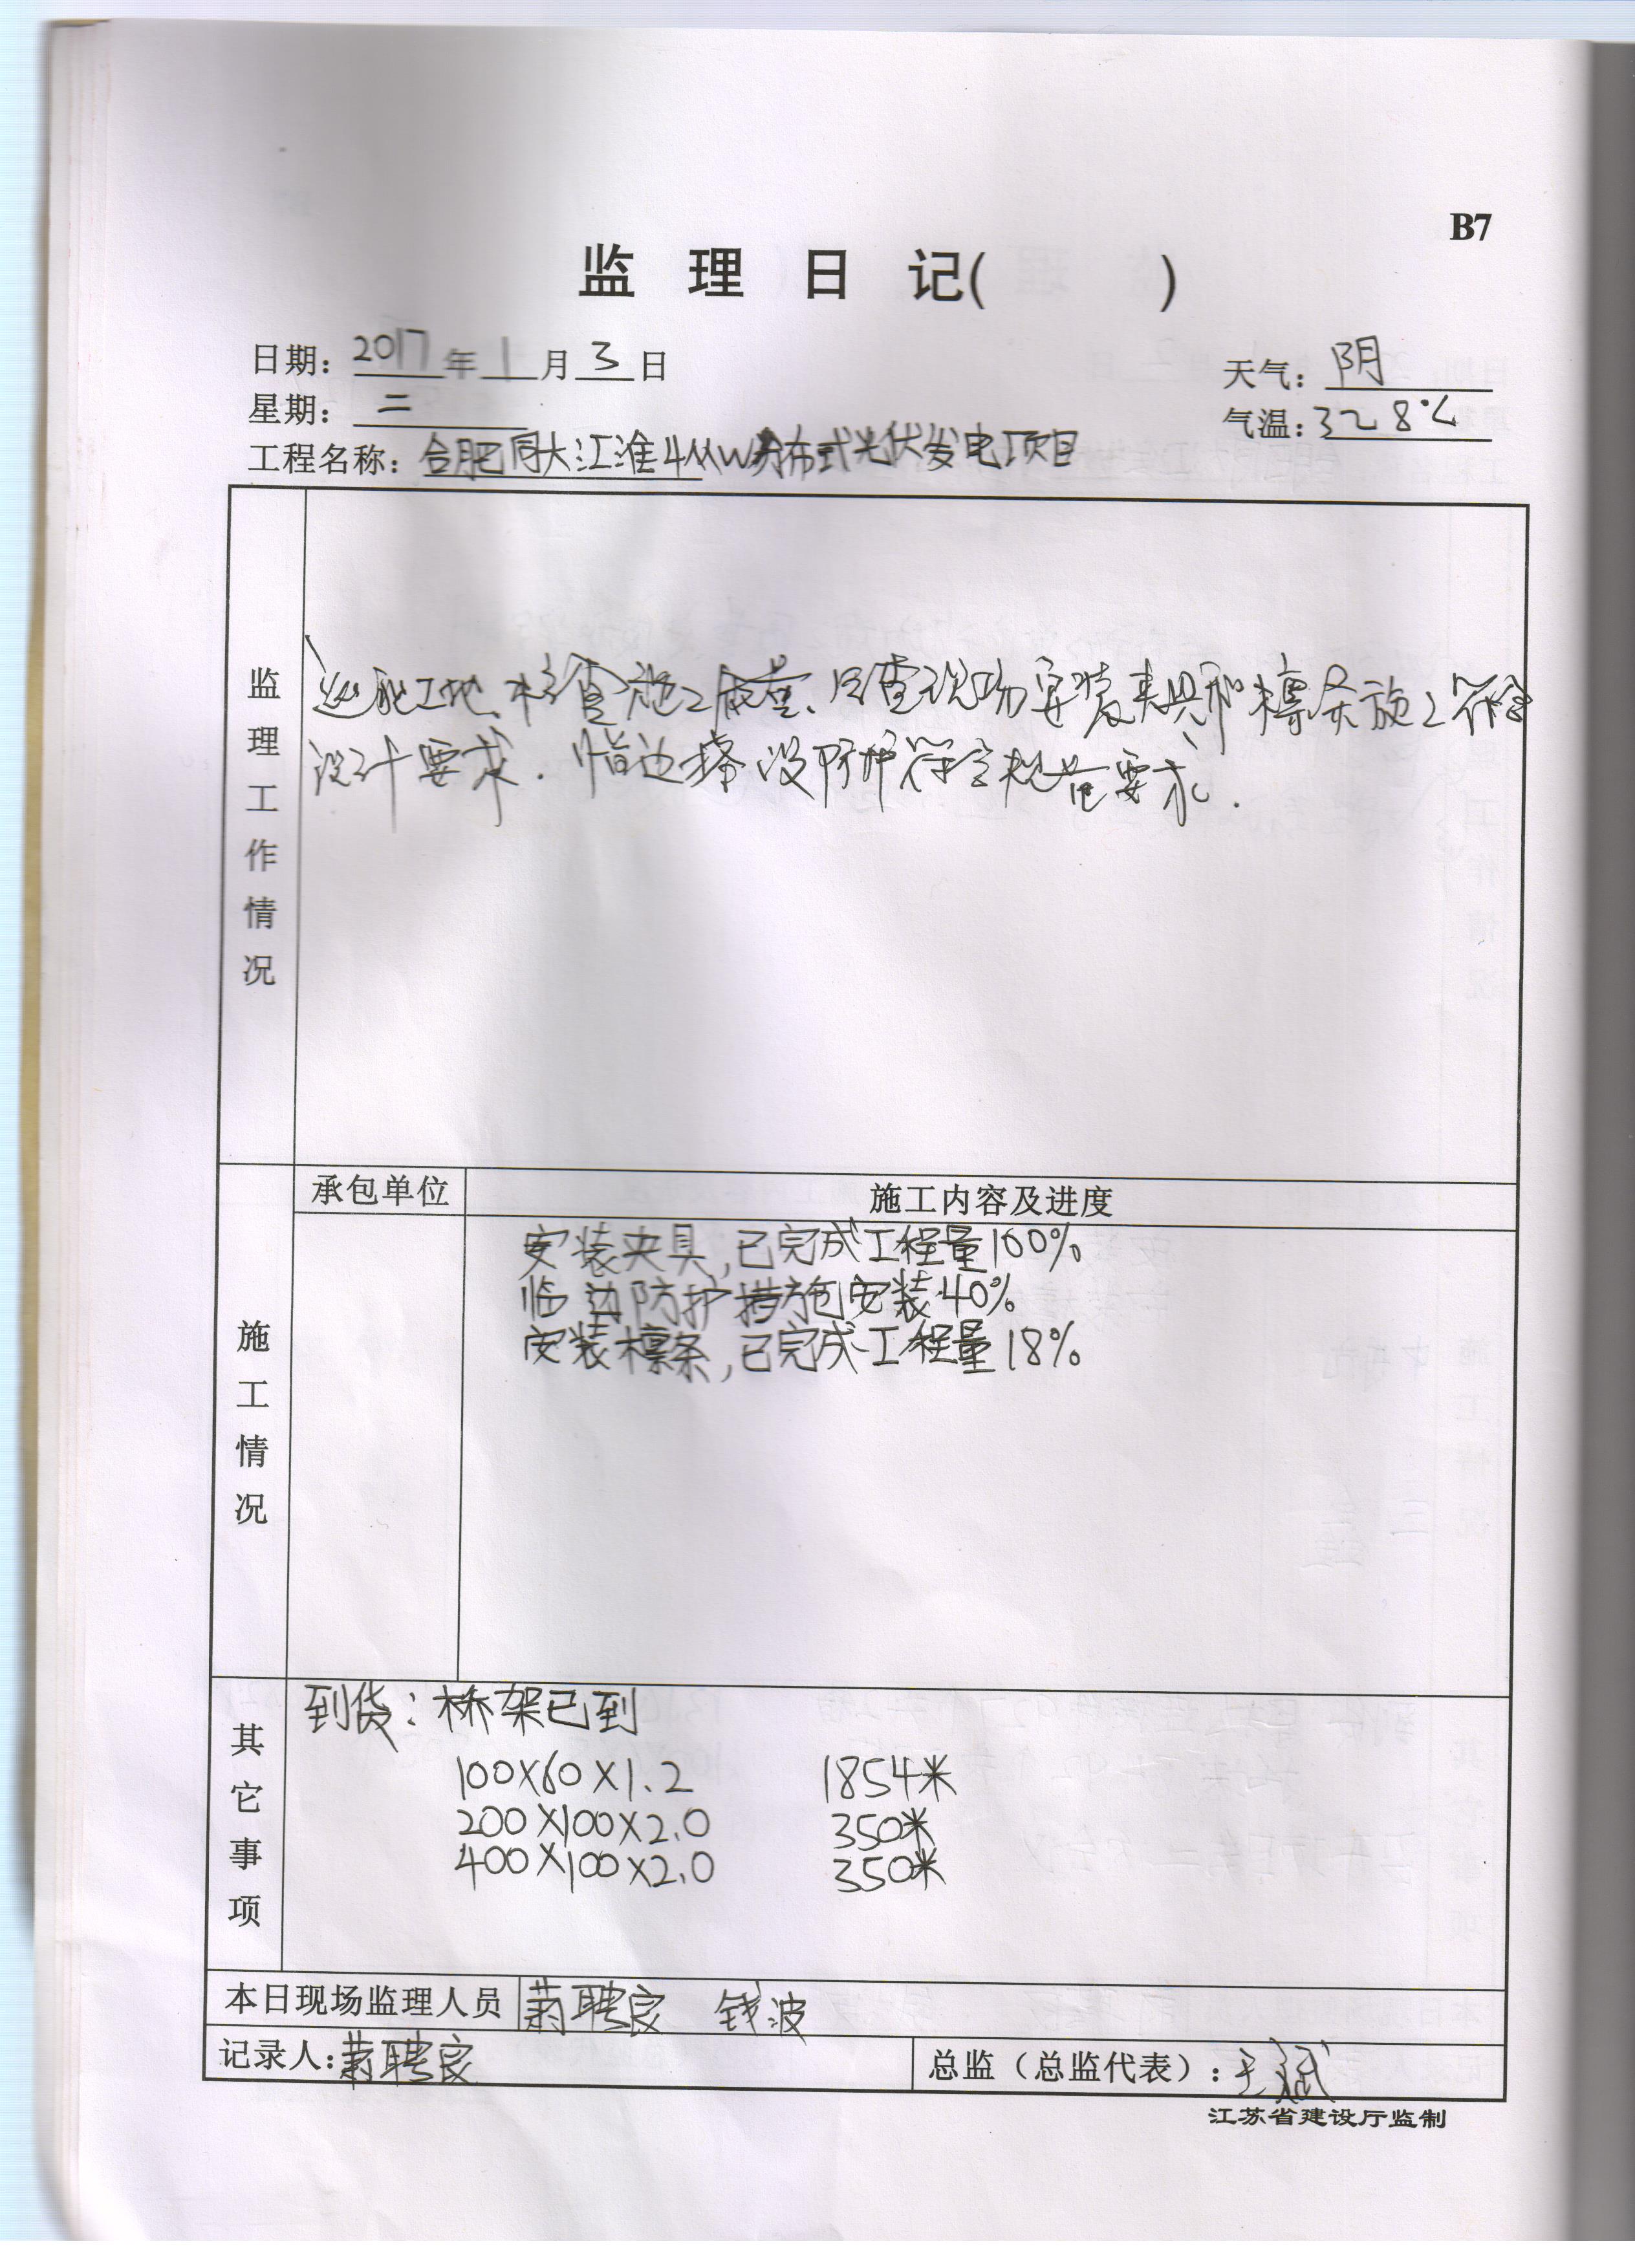 B7
监 理 日 记( )
日期: 2017 年 1 月 3 日
天气: 阴
星期: 二
气温: 3~8℃
工程名称: 合肥同大江淮4MW分布式光伏发电项目
监理工作情况
巡视工地、检查施工质量、日查现场安装夹具和檩条施工符合
设计要求. 临边搭设防护符合规范要求.
承包单位
施工内容及进度
施工情况
安装夹具,已完成工程量100%
临边防护措施安装40%
安装檩条,已完成工程量18%
其它事项
到货: 桥架已到
100X60X1.2 1854米
200X100X2.0 350米
400X100X2.0 350米
本日现场监理人员 聘良 钱波
记录人: 聘良
总监(总监代表): 王斌
江苏省建设厅监制